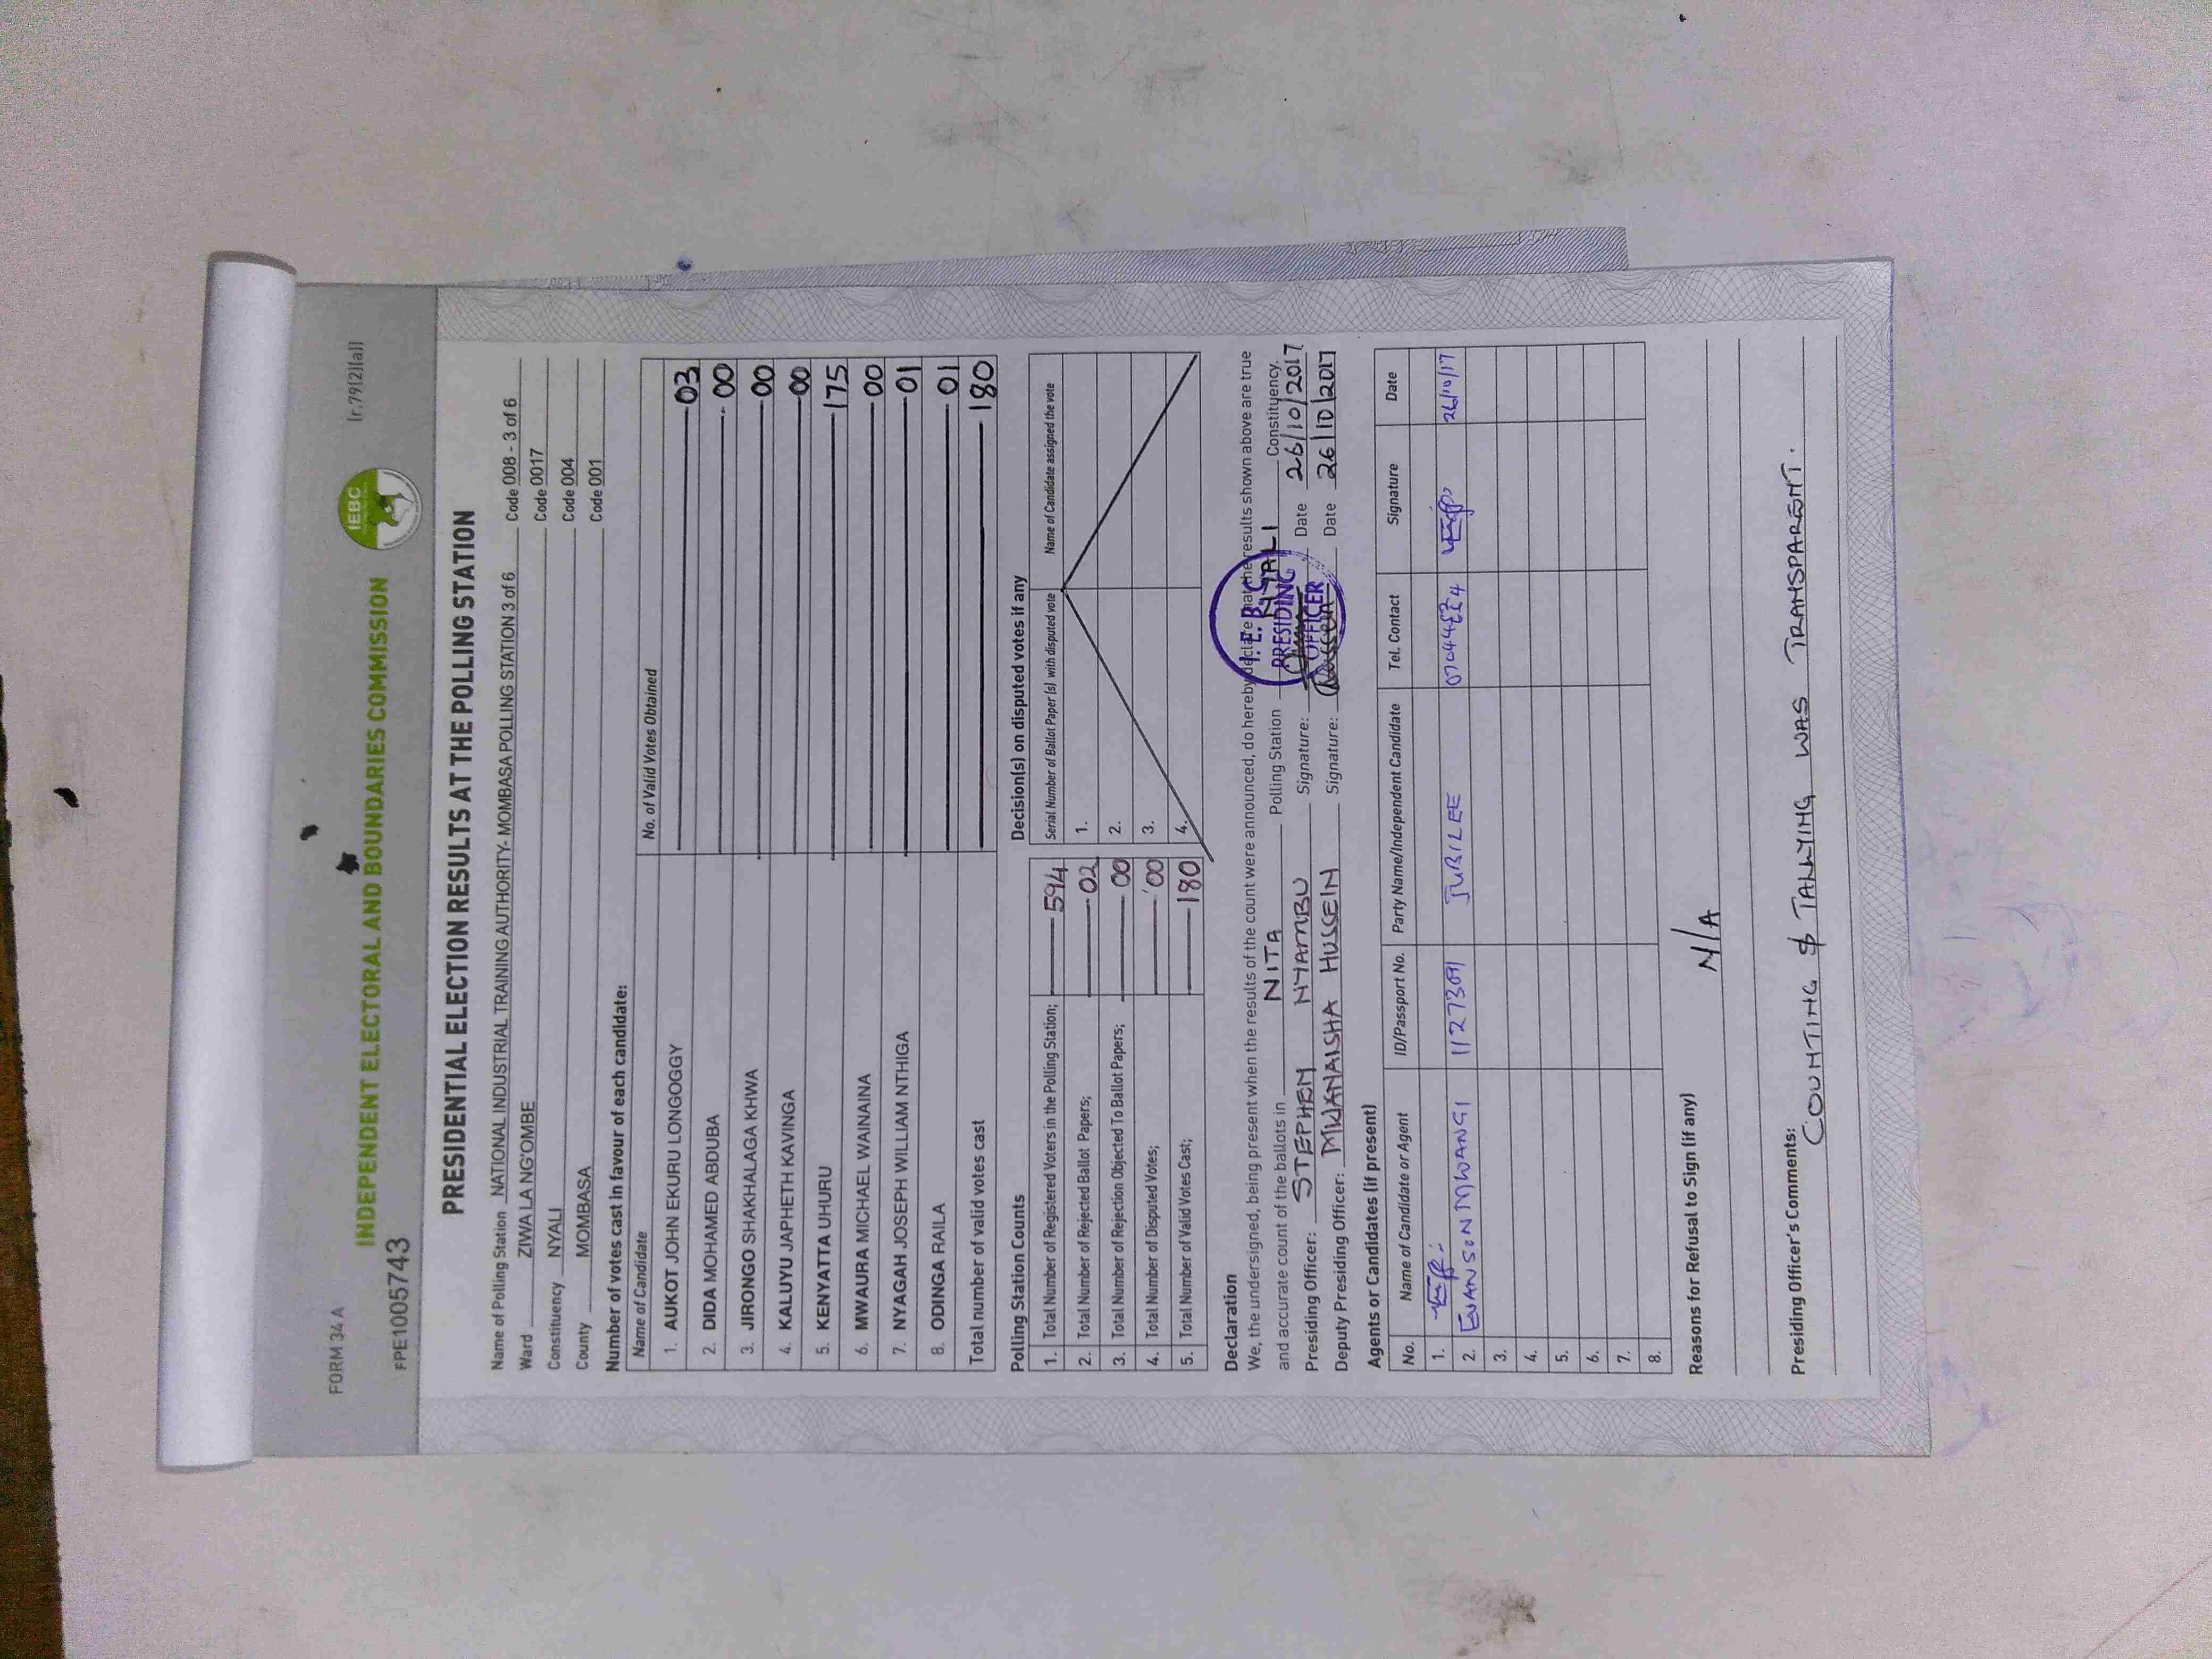 FORM 34 A
(r.79(2)(a))
INDEPENDENT ELECTORAL AND BOUNDARIES COMMISSION
IEBC
FPE1005743
PRESIDENTIAL ELECTION RESULTS AT THE POLLING STATION
Name of Polling Station NATIONAL INDUSTRIAL TRAINING AUTHORITY- MOMBASA POLLING STATION 3 of 6 Code 008 - 3 of 6
Ward ZIWA LA NG'OMBE Code 0017
Constituency NYALI Code 004
County MOMBASA Code 001
Number of votes cast in favour of each candidate:
Name of Candidate No. of Valid Votes Obtained
1. AUKOT JOHN EKURU LONGOGGY 03
2. DIDA MOHAMED ABDUBA 00
3. JIRONGO SHAKHALAGA KHWA 00
4. KALUYU JAPHETH KAVINGA 00
5. KENYATTA UHURU 175
6. MWAURA MICHAEL WAINAINA 00
7. NYAGAH JOSEPH WILLIAM NTHIGA 01
8. ODINGA RAILA 01
Total number of valid votes cast 180
Polling Station Counts
1. Total Number of Registered Voters in the Polling Station; 594
2. Total Number of Rejected Ballot Papers; 02
3. Total Number of Rejection Objected To Ballot Papers; 00
4. Total Number of Disputed Votes; 00
5. Total Number of Valid Votes Cast; 180
Decision(s) on disputed votes if any
Serial Number of Ballot Paper (s) with disputed vote Name of Candidate assigned the vote
1.
2.
3.
4.
Declaration
We, the undersigned, being present when the results of the count were announced, do hereby declare that the results shown above are true
and accurate count of the ballots in NITA Polling Station NYALI Constituency.
Presiding Officer: STEPHEN NYAMBU Signature: Date 26/10/2017
Deputy Presiding Officer: MWANAISHA HUSSEIN Signature: Date 26/10/2017
I.E.B.C
PRESIDING
OFFICER
Agents or Candidates (if present)
No. Name of Candidate or Agent ID/Passport No. Party Name/Independent Candidate Tel. Contact Signature Date
1.
2. EVANSON MWANGI 11273091 JUBILEE 26/10/17
3.
4.
5.
6.
7.
8.
Reasons for Refusal to Sign (if any)
N/A
Presiding Officer's Comments:
COUNTING & TALLYING WAS TRANSPARENT.